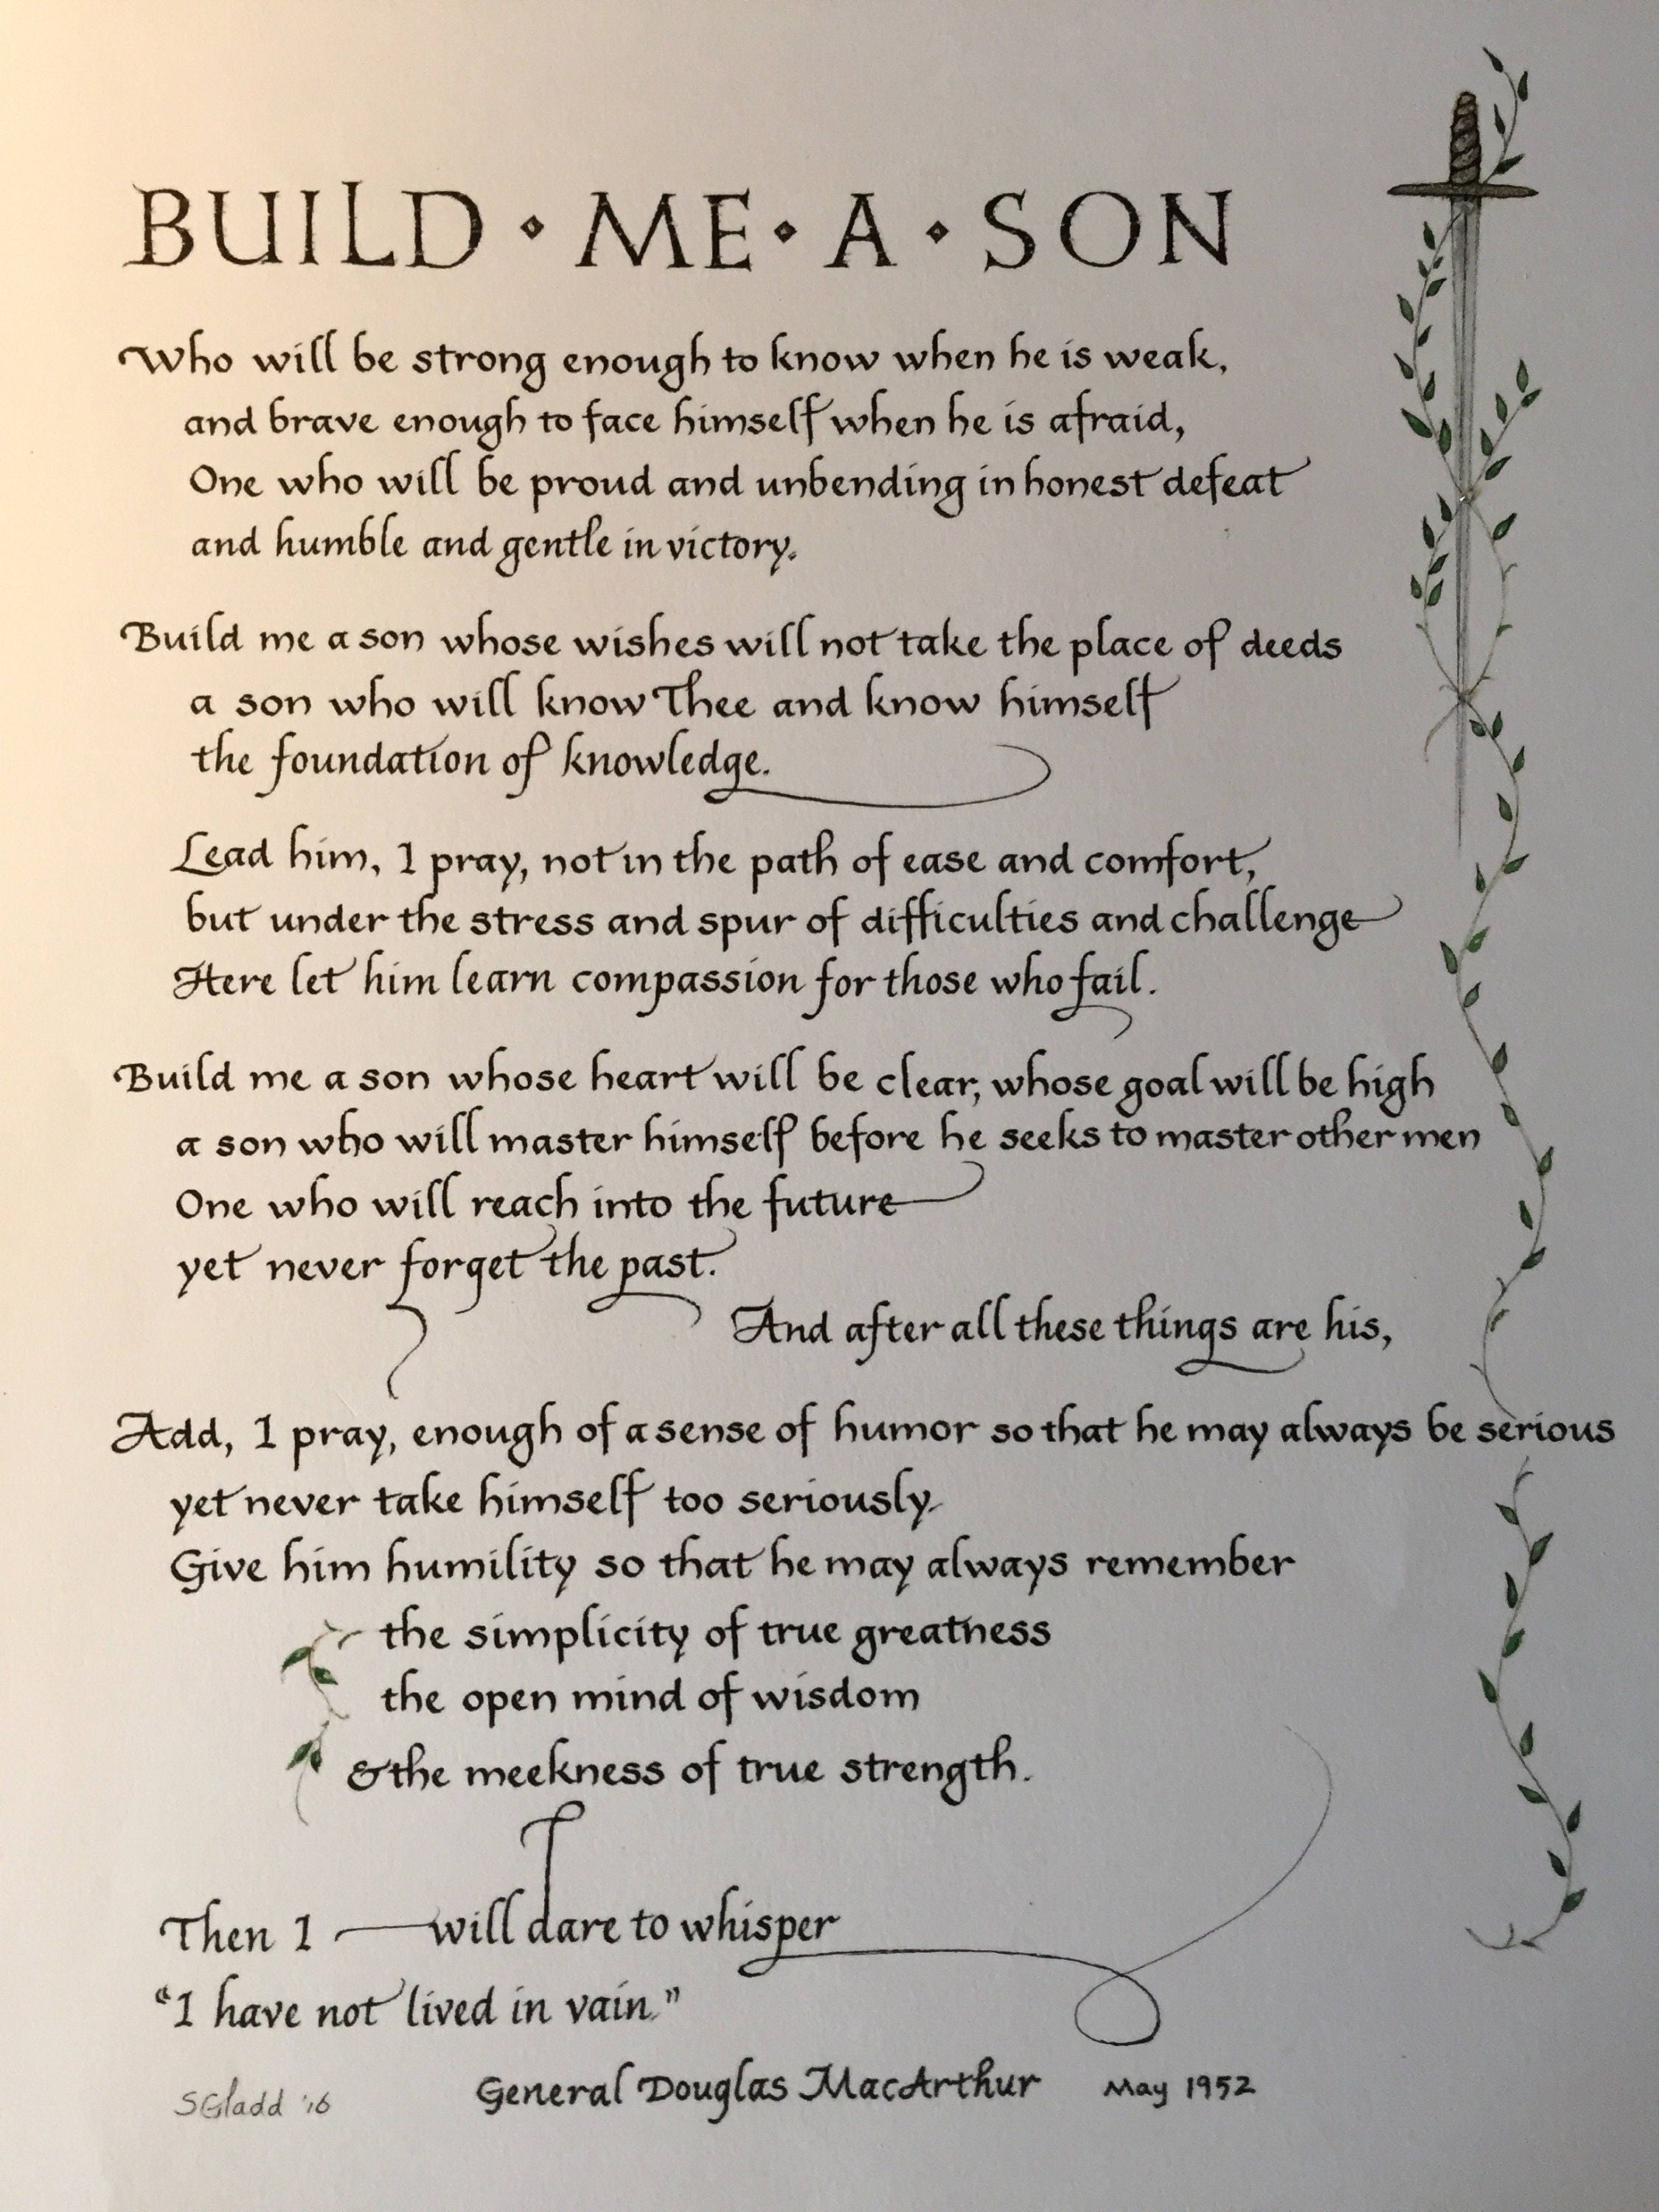 BUILD · ME · A · SON
Who will be strong enough to know when he is weak,
and brave enough to face himself when he is afraid,
One who will be proud and unbending in honest defeat
and humble and gentle in victory.
Build me a son whose wishes will not take the place of deeds
a son who will know Thee and know himself
the foundation of knowledge.
Lead him, I pray, not in the path of ease and comfort,
but under the stress and spur of difficulties and challenge
Here let him learn compassion for those who fail.
Build me a son whose heart will be clear, whose goal will be high
a son who will master himself before he seeks to master other men
One who will reach into the future
yet never forget the past.
And after all these things are his,
Add, I pray, enough of a sense of humor so that he may always be serious
yet never take himself too seriously.
Give him humility so that he may always remember
the simplicity of true greatness
the open mind of wisdom
& the meekness of true strength.
Then I — will dare to whisper
“I have not lived in vain.”
General Douglas MacArthur May 1952
SGladd '16